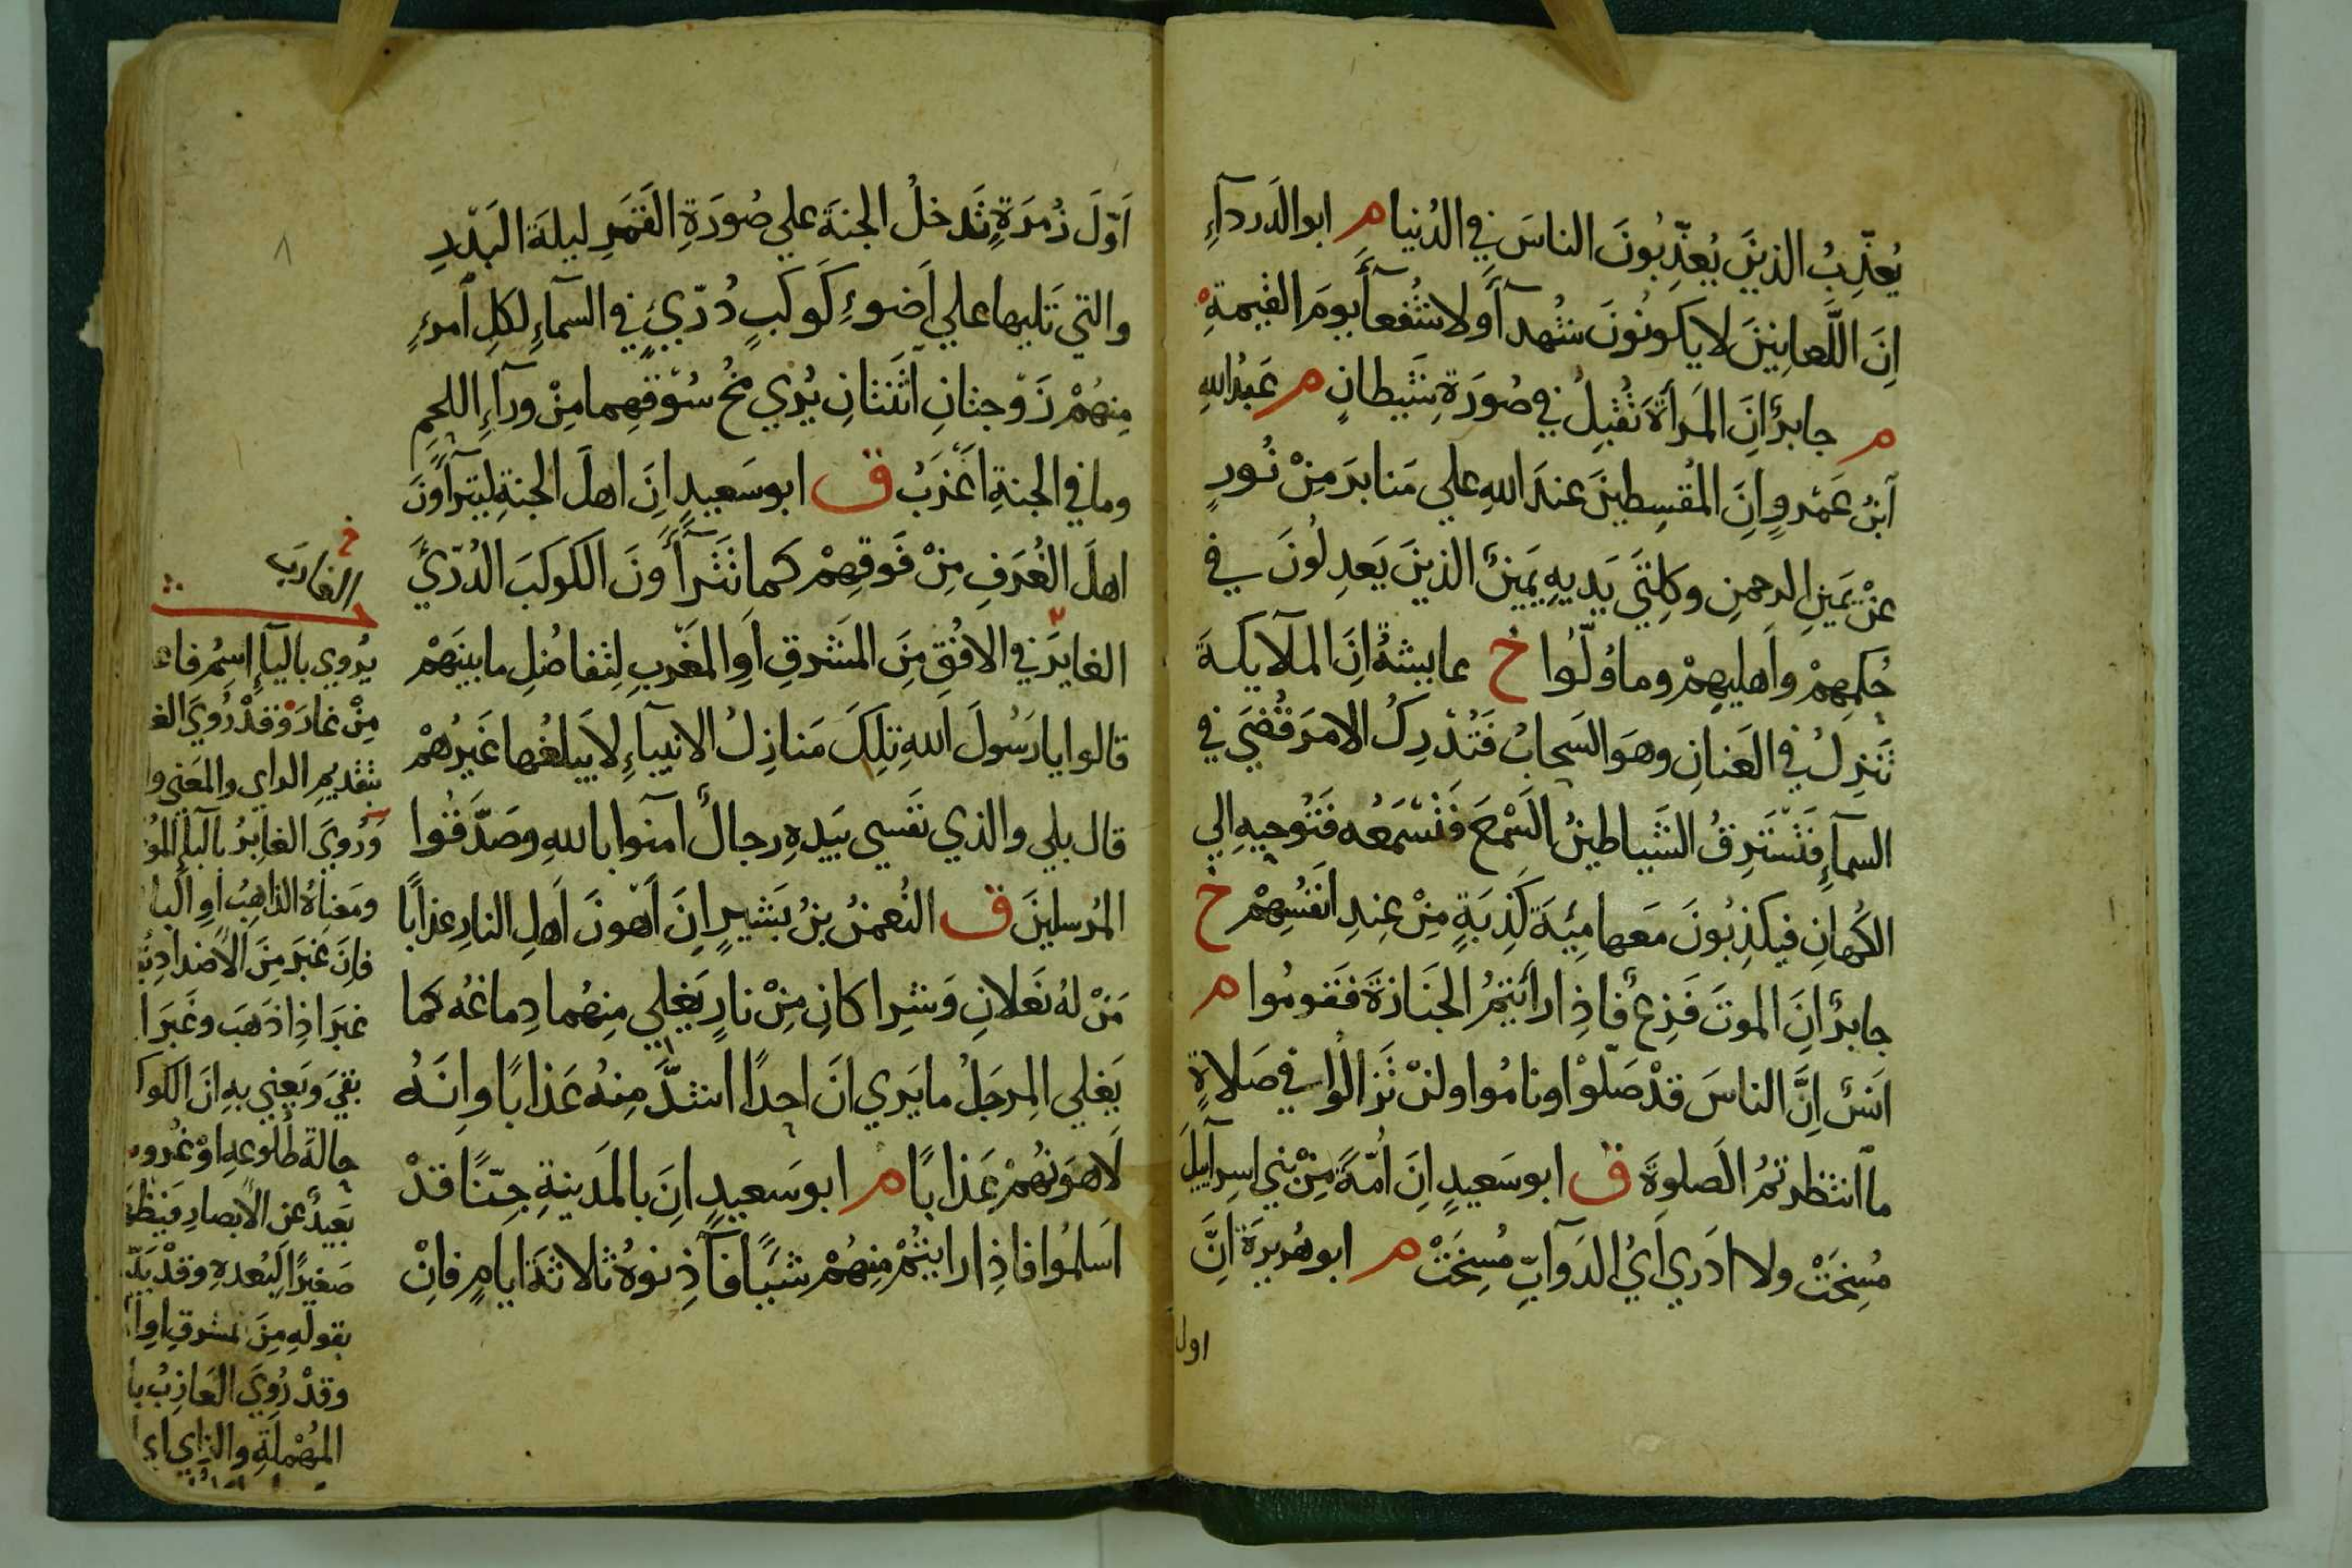 يُعَذِّبُ الذينَ يُعَذِّبُونَ الناسَ في الدُنيا م ابو الدَرداَءِ
اِنَ اللَّعانِينَ لا يَكونُونَ شُهدآَءَ ولا شُفعآَءَ يومَ القيمةِ
م جابرٌ اِنَ المَرأةَ تُقبِلُ في صُورَةِ شَيطانٍ م عَبدُ اللهِ
آبنُ عَمْروٍ اِنَ المُقسِطينَ عندَ اللهِ علي مَنابرَ مِنْ نُورٍ
عنْ يَمينِ الرحمنِ وكِلتَي يَديهِ يَمينٌ الذينَ يَعدِلُونَ في
حُكمِهمْ واَهليهِمْ وما وُلّوُا خ عايشةُ اِنَ الملآيكةَ
تَنزِلُ في العَنانِ وهوَ السَحابُ فَتُدْرِكُ الامرَ قُضيَ في
السمآءِ فَتَسْتَرِقُ الشَياطينُ السَمْعَ فَتَسْمَعُه فتُوحيهِ الي
الكُهانِ فيكذِبُونَ مَعها مِئَةَ كَذِبَةٍ مِنْ عِندِ اَنفُسِهِمْ خ
جابرٌ اِنَ الموتَ فَزِعٌ فاذِا رأيتمُ الجَنازةَ فَقومُوا م
اَنسٌ اِنَّ الناسَ قدْ صَلّوْا ونامُوا ولنْ تَزالُوا في صَلاةٍ
ما انتظرتمُ الصلوةَ ق ابو سَعيدٍ اِنَ اُمّةً مِنْ بني اسرآييلَ
مُسِخَتْ ولا ادَري اَيُ الدَوآبِّ مُسِخَتْ م ابو هُريرَةَ اِنَّ
اول
٨
اَوّلَ زُمرَةٍ تَدخلُ الجنةَ علي صُورَةِ القَمَرِ ليلةَ البَدْرِ
والتي تَليها علي اَضوءِ كَوكَبٍ دُرّيٍّ في السمآءِ لكلِ اَمرءٍ
مِنهُمْ زَوجتانِ اَثنتانِ يُرَي مُخُ سُوْقِهِما مِنْ ورآءِ اللحمِ
وما في الجنةِ اَعْزَبُ ق ابو سَعيدٍ اِنَ اهلَ الجنةِ ليَترآَوْنَ
اهلَ الغُرَفِ مِنْ فَوقِهِمْ كما تَترآَءَونَ الكَوكَبَ الدُرّيَّ
الغايرَ في الافُقِ مِنَ المَشرقِ اَوِ المَغْربِ لِتفاضُلِ ما بَينَهُمْ
قالوا يا رَسُولَ اَللهِ تلِكَ مَنازِلُ الانبيآءِ لا يَبلغُها غَيرُهمْ
قال بلي والذي نَفسي بيَدهِ رجالٌ آمنوا باللهِ وصَدَّقُوا
المُرسلينَ ق النُعمنُ بنُ بَشيرٍ اِنَ اَهْونَ اَهلِ النارِ عذابًا
مَنْ لهُ نَعلانِ وَشِراكانِ مِنْ نارٍ يَغلِي مِنهُما دِماغُه كما
يَغلي المِرجَلُ ما يَري انَ احدًا اشدَّ مِنهُ عَذابًا واِنَهُ
لَاهوَنهُمْ عَذابًا م ابو سَعيدٍ اِنَ بالمَدينةِ جِنّا قدْ
اَسلمُوا فاذِا رايتُمْ مِنهُمْ شَيئًا فآذِنوهُ ثَلاثةَ ايامٍ فانْ
خ
الغارب
يُروي باليآءِ اسمُ فاع
مِنْ غارَ وقَدْ رُويَ الغ
بتقديمِ الراي والمَعني وا
ورُويَ الغابرُ بالبآءِ المُو
ومَعناهُ الذاهِبُ اوِ البا
فاِنَ غبَرَ مِنَ الاضدادِ
غبَرَ اذِا ذَهبَ وغَبَرَ ا
بقيَ ويَعني بهِ انَ الكوك
حالةَ طلوعهِ اوْ غُروب
بَعيدٌ عنِ الابصارِ فيَظهَ
صَغيرًا لبُعدهِ وقدْ بَيّن
بقولهِ مِنَ المشرقِ اوِ ا
وقدْ رُويَ العَازِبُ با
المُهْملةِ والزاي اي